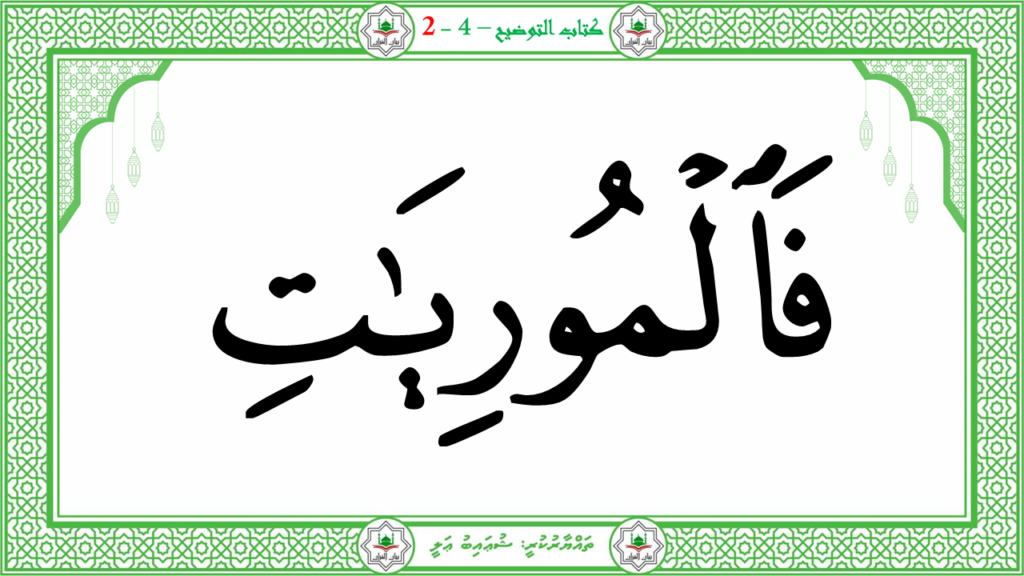 كتاب التوضيح – 4 - 2
فَٱلْمُورِيَـٰتِ
ތައްޔާރުކުރީ: ޝުޢައިބު ޢަލީ